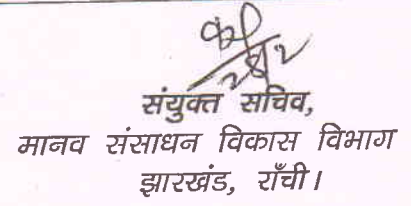 संयुक्त सचिव,
मानव संसाधन विकास विभाग
झारखंड, राँची।